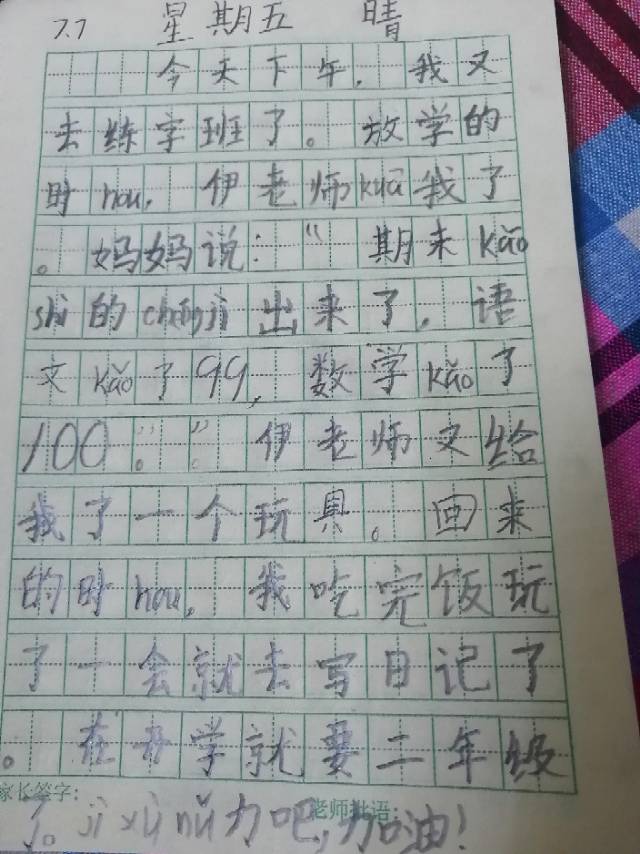 7.7 星期五 晴
今天下午，我又
去练字班了。放学的
时hou，伊老师kuā我了
。妈妈说：“期末kǎo
shì的chéngjì出来了，语
文kǎo了99，数学kǎo了
100。”。伊老师又给
我了一个玩具。回来
的时hou，我吃完饭玩
了一会就去写日记了
。在开学就要二年级
家长签字： 老师批语：
了。jì xù nǔ力吧，加油！